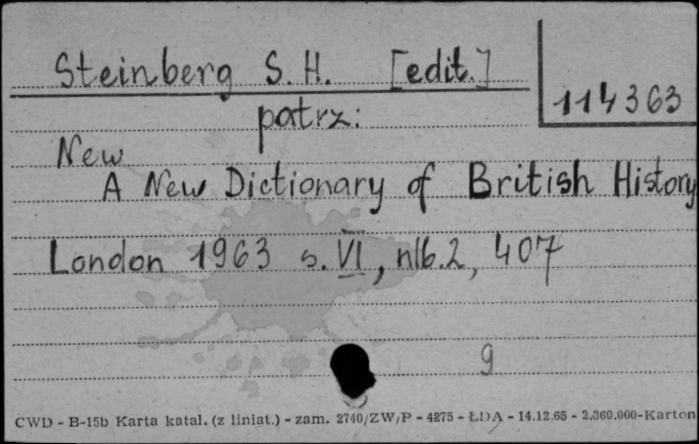 Steinberg S.H. [edit.]
114363
patrz:
New
A New Dictionary of British History
London 1963 s. VI, nlb. 2, 407
g
CWD - B-15b Karta katal. (z liniat.) - zam. 2740/ZW/P - 4275 - ŁDA - 14.12.65 - 2,360.000-Karton